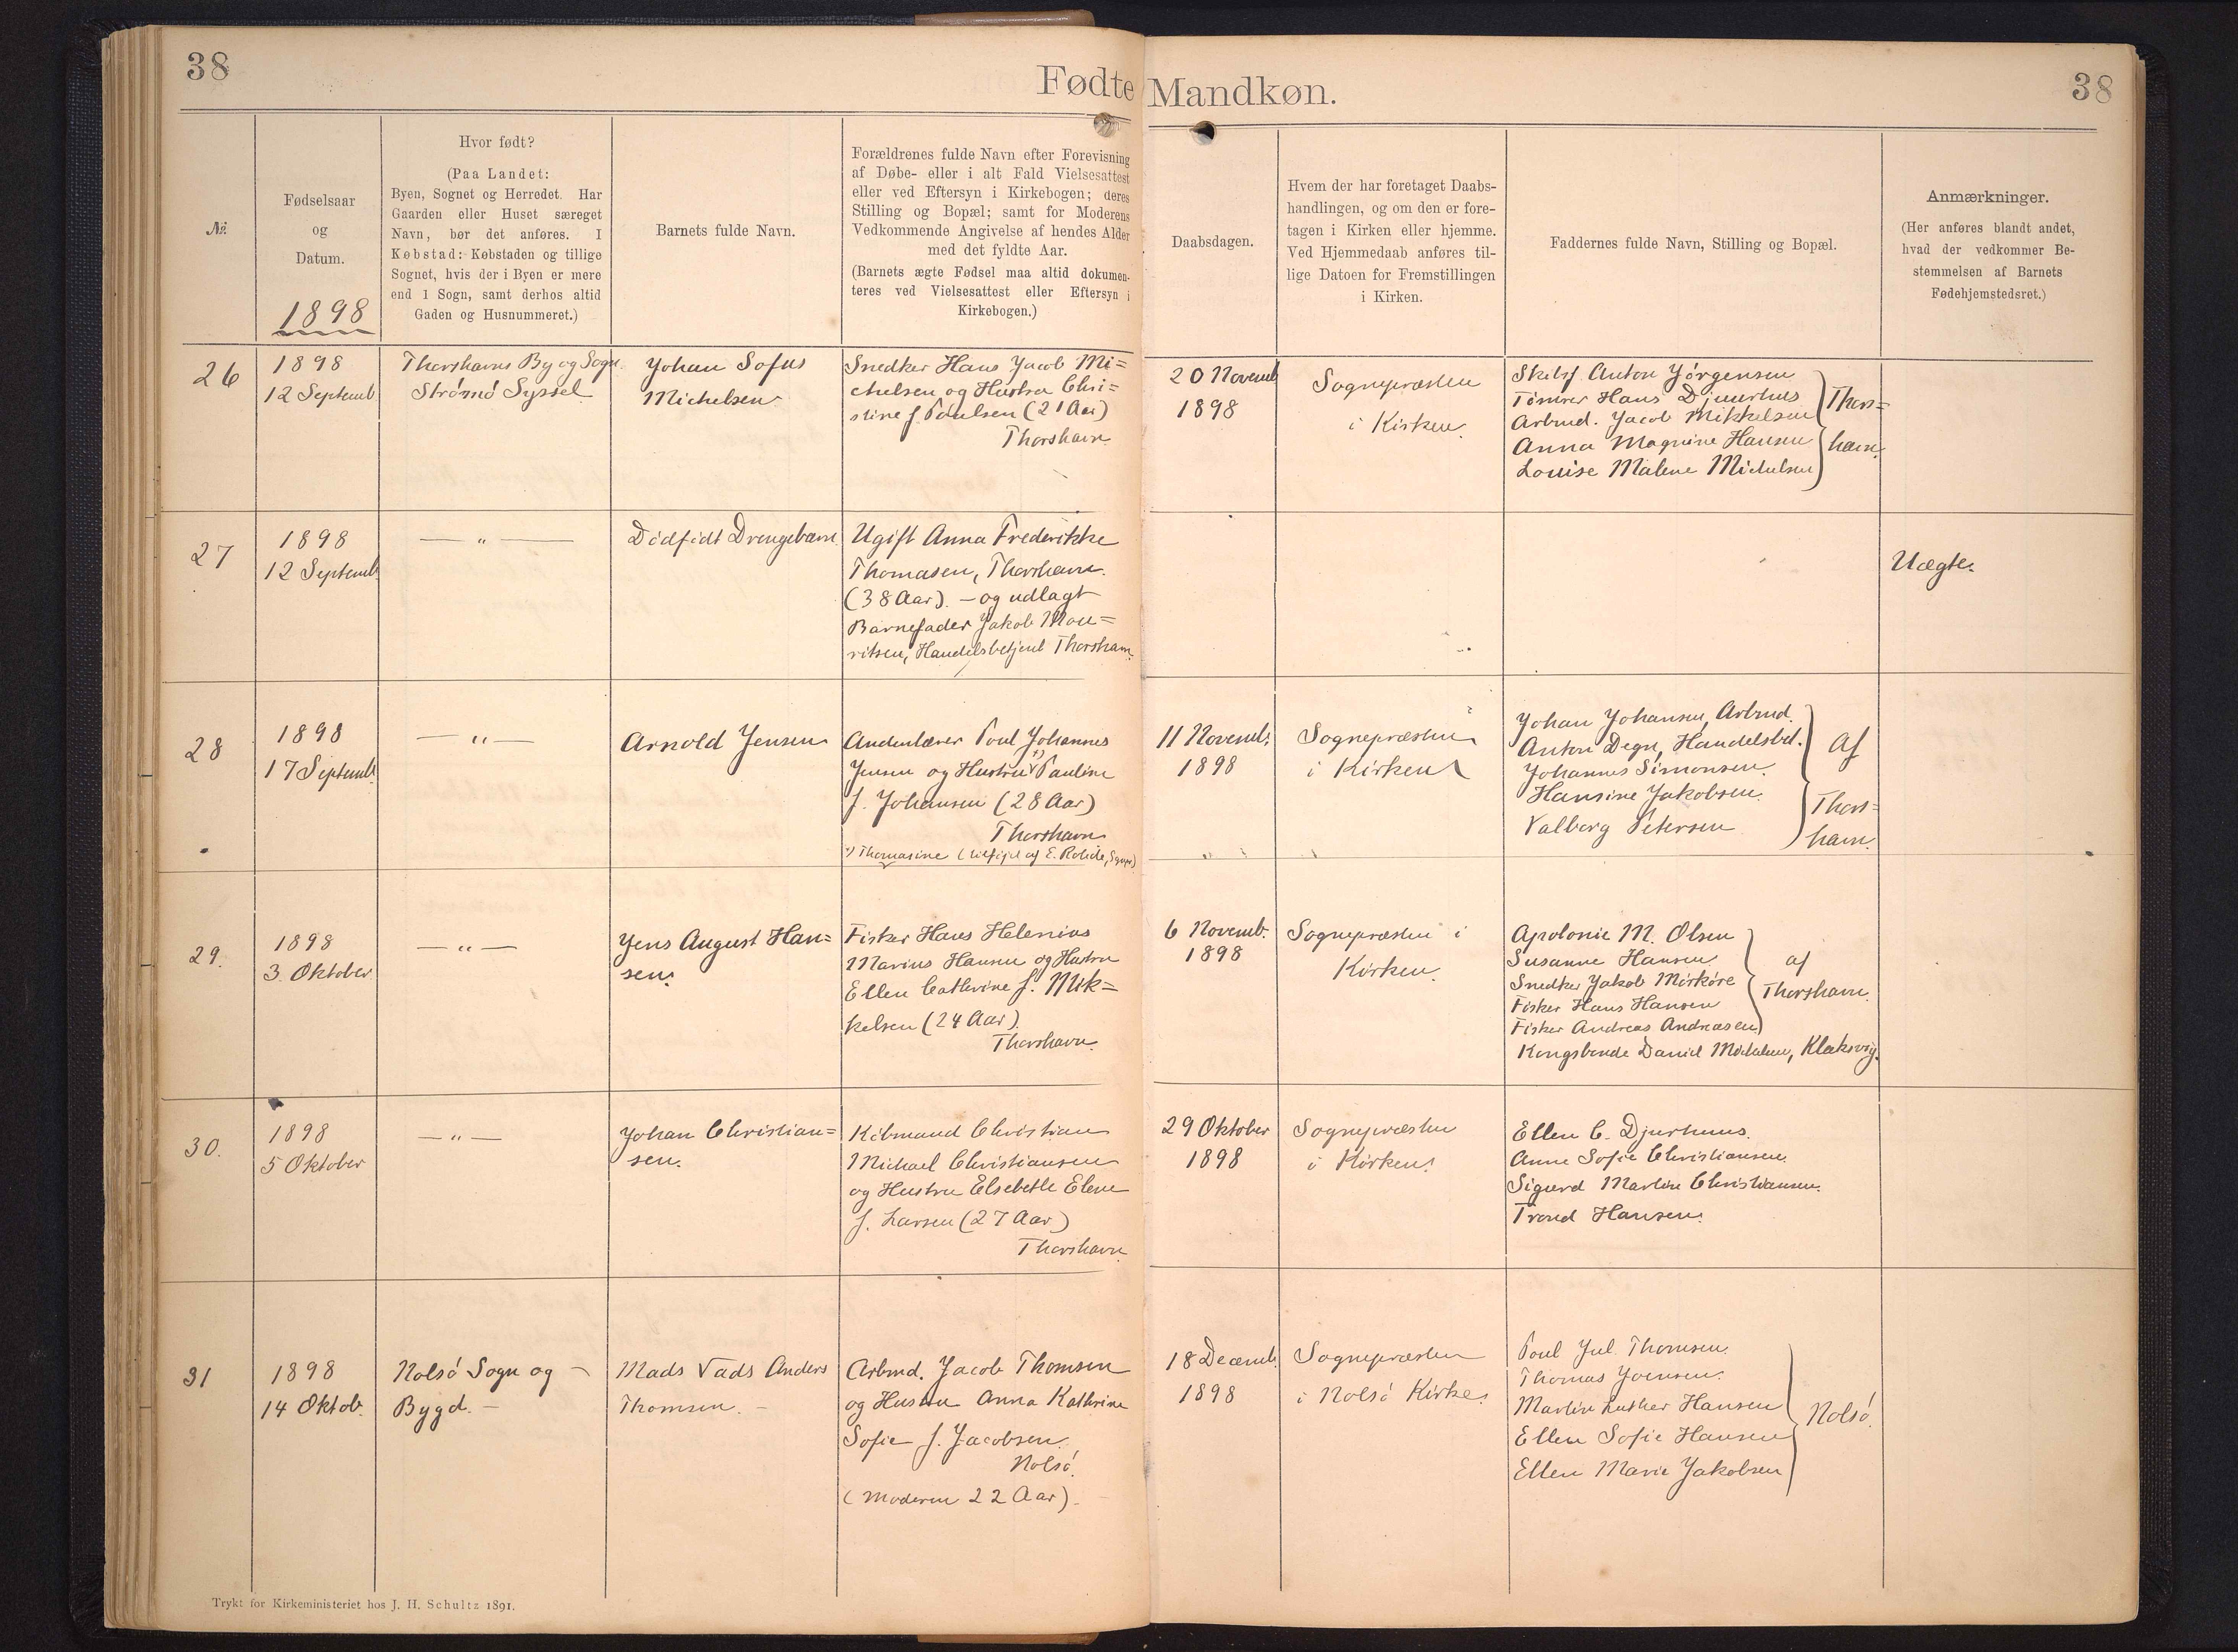 38
Fødte Mandkøn.
38
№.
Fødselsaar
og
Datum.
1898
Hvor født?
(Paa Landet:
Byen, Sognet og Herredet. Har
Gaarden eller Huset særeget
Navn, bør det anføres. I
Købstad: Købstaden og tillige
Sognet, hvis der i Byen er mere
end 1 Sogn, samt derhos altid
Gaden og Husnummeret.)
Barnets fulde Navn.
Forældrenes fulde Navn efter Forevisning
af Døbe- eller i alt Fald Vielsesattest
eller ved Eftersyn i Kirkebogen; deres
Stilling og Bopæl; samt for Moderens
Vedkommende Angivelse af hendes Alder
med det fyldte Aar.
(Barnets ægte Fødsel maa altid dokumen-
teres ved Vielsesattest eller Eftersyn i
Kirkebogen.)
Daabsdagen.
Hvem der har foretaget Daabs-
handlingen, og om den er fore-
tagen i Kirken eller hjemme.
Ved Hjemmedaab anføres til-
lige Datoen for Fremstillingen
i Kirken.
Faddernes fulde Navn, Stilling og Bopæl.
Anmærkninger.
(Her anføres blandt andet,
hvad der vedkommer Be-
stemmelsen af Barnets
Fødehjemstedsret.)
26
1898
12 Septemb.
Thorshavns By og Sogn.
Strómó Syssel
Johan Sofus
Michelsen
Snedker Hans Jacob Mi=
chelsen og Hustru Chri=
stine f. Poulsen (21 Aar)
Thorshavn
20 Novemb.
1898
Sognepræsten
i Kirken.
Anton Jórgensen
Tómrer Hans Djuurhus
Arbmd. Jacob Mikkelsen
Anna Magnine Hansen
Louise Malene Michelsen
Thors=
havn.
27
1898
12 Septemb.
— " —
Dódfódt Drengebarn.
Ugift Anna Frederikke
Thomasen, Thorshavn.
(38 Aar). — og udlagt
Barnefader Jakob Mou=
ritsen, Handelsbetjent Thorshavn.
Uægte.
28
1898
17 Septemb.
— " —
Arnold Jensen
Andenlærer Poul Johannes
Jensen og Hustru *) Pauline
f. Johansen (28 Aar)
Thorshavn
*) Thomasine (tilfójet af E. Rohde, Sgnpr)
11 Novemb.
1898
Sognepræsten
i Kirken
Johan Johansen, Arbmd.
Anton Degn, Handelsbet.
Johannes Simonsen.
Hansine Jakobsen.
Valborg Petersen
Af
Thors=
havn.
29.
1898
3. Oktober
— " —
Jens August Han=
sen.
Fisker Hans Helenius
Marius Hansen og Hustru
Ellen Cathrine f. Mik=
kelsen (24 Aar).
Thorshavn.
6 Novemb.
1898
Sognepræsten i
Kirken.
Apolonie M. Olsen
Susanne Hansen
Snedker Jakob Mórkóre
Fisker Hans Hansen
Fisker Andreas Andreasen
af
Thorshavn.
Kongsbonde Daniel Michelsen, Klaksvig.
30.
1898
5 Oktober
— " —
Johan Christian=
sen.
Kóbmand Christian
Michael Christiansen
og Hustru Elsebeth Elene
f. Larsen (27 Aar)
Thorshavn
29 Oktober
1898
Sognepræsten
i Kirken.
Ellen C. Djurhuus.
Anne Sofie Christiansen.
Sigurd Martin Christiansen.
Trond Hansen.
31
1898
14 Oktob.
Nolsó Sogn og —
Bygd. —
Mads Vads Anders
Thomsen. —
Arbmd. Jacob Thomsen
og Hustru Anna Kathrine
Sofie f. Jacobsen.
Nolsó.
(Moderen 22 Aar). —
18 Decemb.
1898
Sognepræsten
i Nolsó Kirke.
Poul Jul. Thomsen.
Thomas Joensen.
Martin Luther Hansen
Ellen Sofie Hansen
Ellen Marie Jakobsen
Nolsó.
Trykt for Kirkeministeriet hos J. H. Schultz 1891.